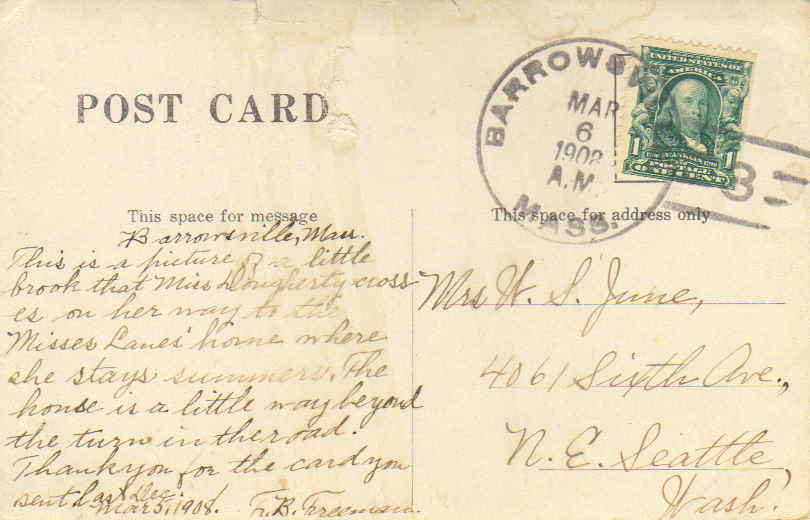 POST CARD
BARROWSV
MAR
6
1908
A.M.
MASS.
UNITED STATES OF
AMERICA
1 1
POSTAGE
ONE CENT
3
This space for message
This space for address only
Barrowsville, Mass.
This is a picture of a little
brook that Miss Dougherty cross
es on her way to the
Misses Lanes' home where
she stays summers. The
house is a little way beyond
the turn in the road.
Thank you for the card you
sent last Dec.
Mar 5, 1908. F. B. Freeman.
Mrs W. S. June,
4061 Sixth Ave.,
N. E. Seattle,
Wash.